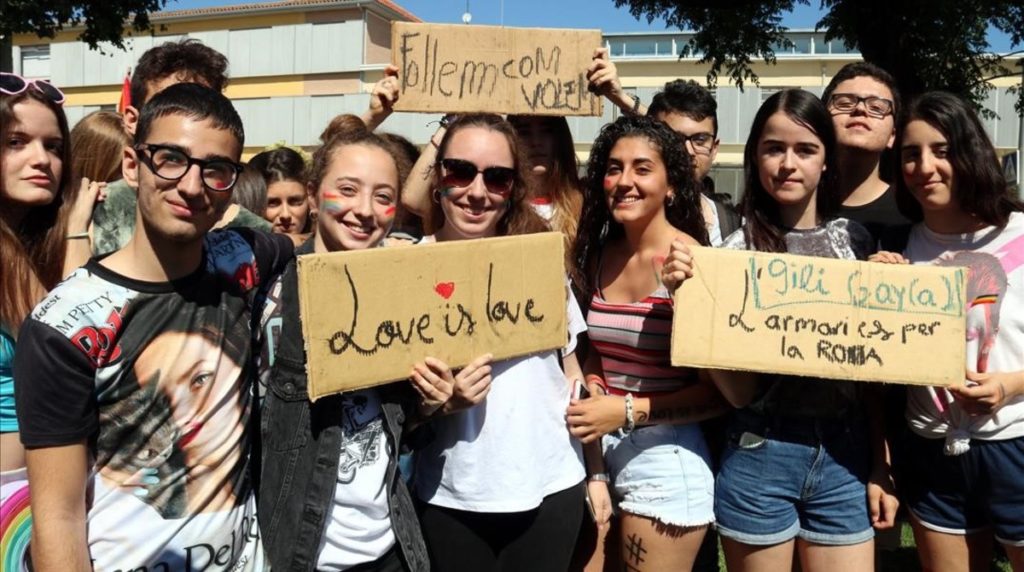 Follem com
VOLEM
Love is love
¡Gili (gay(a)!
L'armari és per
la ROMA
PETTY
#